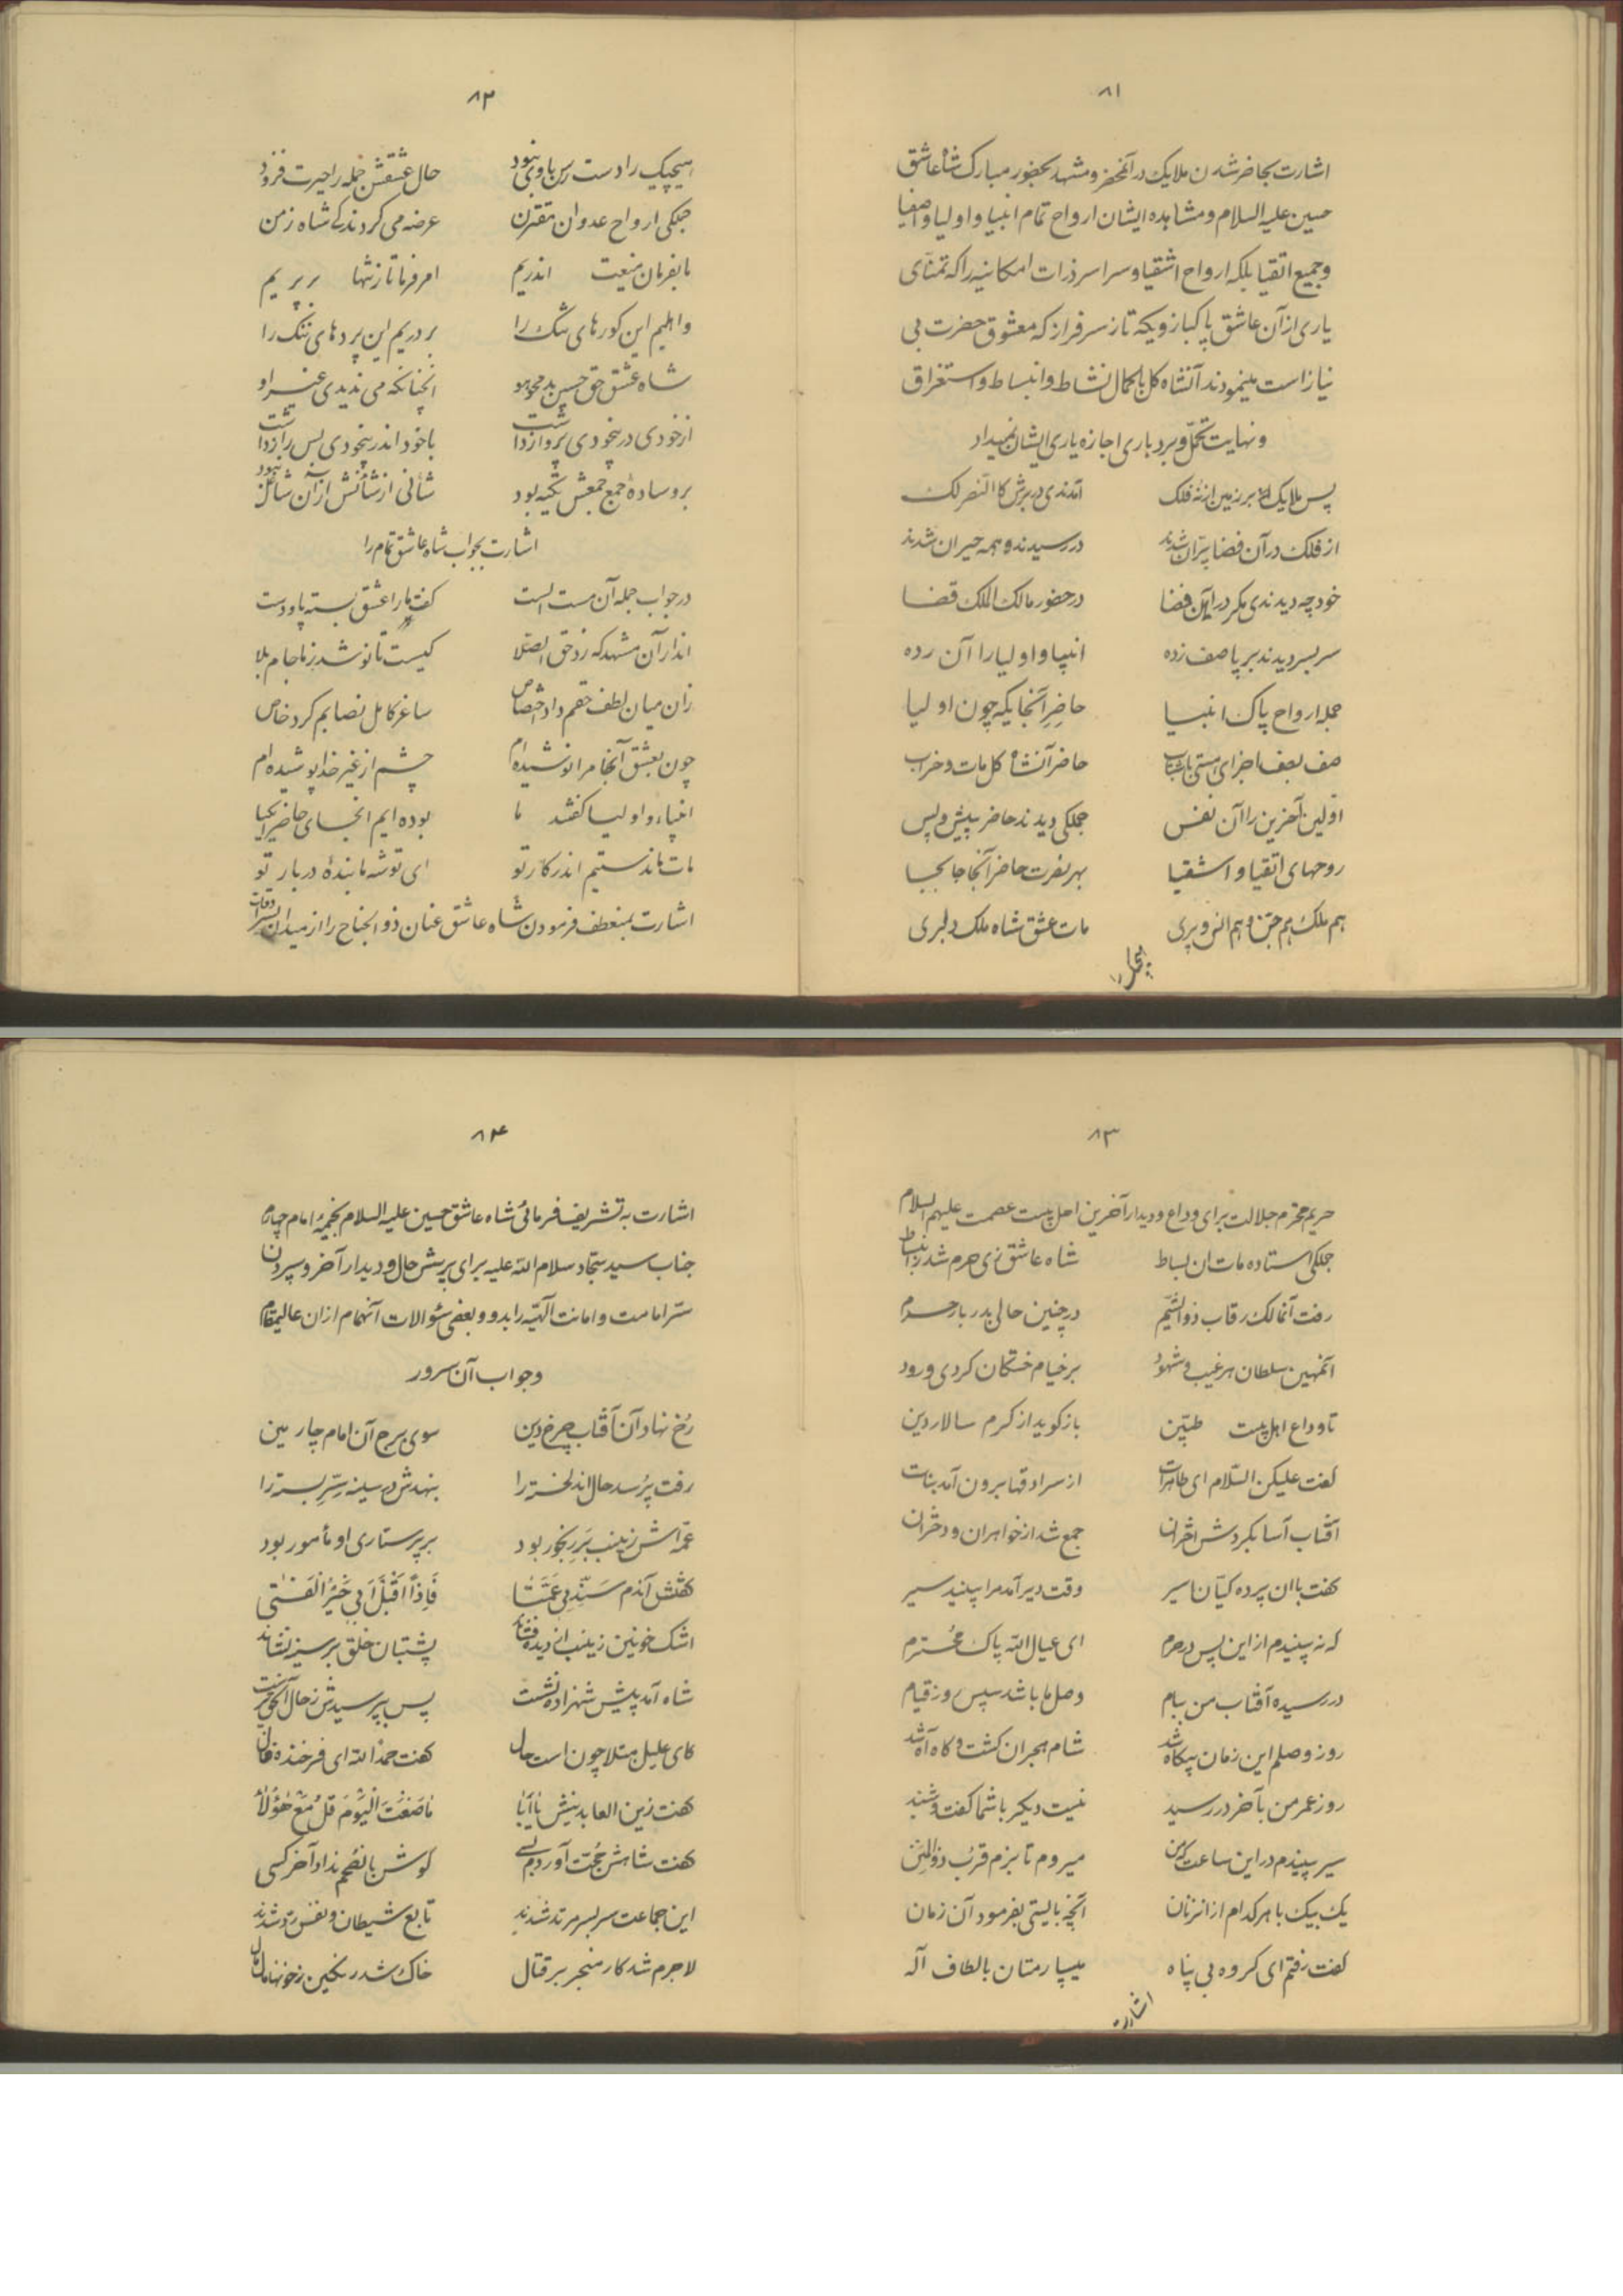 ۸۱
اشارت بحاضر شدن ملایک در آنمحضر و مشهد بحضور مبارک شاه عاشق
حسین علیه السلام و مشاهده ایشان ارواح تمام انبیا و اولیا و اصفیا
و جمیع اتقیا بلکه ارواح اشقیا و سراسر ذرات امکانیه را که تمنّای
یاری از آن عاشق پاکباز و یکه تاز سرفراز که معشوق حضرت بی
نیاز است مینمودند آنشاه کل بکمال نشاط و انبساط و استغراق
و نهایت تحمّل و بردباری اجازه یاری ایشان نمیداد
پس ملایک بر زمین از نه فلک آمدندی در برش کالنصر لک
از فلک در آن فضا پرّان شدند در رسیدند و همه حیران شدند
خود چه دیدندی مگر در این فضا در حضور مالک الملک قضا
سر بسر دیدند بر پا صف زده انبیا و اولیا را آن رده
جمله ارواح پاک انبیا حاضر آنجا یکه چون اولیا
صف بصف اجزای هستی باشتاب حاضر آنشاه کل مات و خراب
اولین آخرین را آن نفس جملگی دیدند حاضر پیش و پس
روحهای اتقیا و اشقیا بهر نصرت حاضر آنجا جابجا
هم ملک هم جنّ و هم انس و پری مات عشق شاه ملک دلبری
هیچیک را
۸۲
هیچیک را دست رس با وی نبود حال عشقش جمله را حیرت فزود
جملگی ارواح عدوان مقترن عرضه می کردند کی شاه زمن
ما بفرمان منیعت اندریم امر فرما تا ز تنها بر پریم
واهلیم این گورهای تنگ را بر دریم این پردهای ننگ را
شاه عشق حق حسین بد محو هو آنچنانکه می ندیدی غیر او
از خودی در بیخودی پرواز داشت با خود اندر بیخودی بس راز داشت
بر وسادهٔ جمع جمعش تکیه بود شأنی از شأنش از آن شاغل نبود
اشارت بجواب شاه عاشق تمام را
در جواب جمله آن مست الست گفت ما را عشق بسته پا و دست
اندر آن مشهد که زد حق الصّلا کیست تا نوشد ز ما جام بلا
زان میان لطف حقم داد اختصاص ساغر کامل نصابم کرد خاص
چون بعشق آنجا مر او نوشیده‌ام چشم از غیر خدا پوشیده‌ام
انبیاء و اولیا گفتند ما بوده ایم آنجای حاضر ای کیا
مات ماندستیم اندر کار تو ای تو شه ما بندهٔ دربار تو
اشارت بمنعطف فرمودن شاه عاشق عنان ذوالجناح را از میدان بسرادقات
۸۳
حریم محترم جلالت برای وداع و دیدار آخرین اهل بیت عصمت علیهم السلام
جملگی استاده مات ان بساط شاه عاشق زی حرم شد
رفت آنمالک رقاب ذوالشّیم در چنین حالی بدربار حرم
آنمهین سلطان هر غیب و شهود بر خیام خستگان کردی ورود
تا وداع اهل بیت طیّبین باز گوید از کرم سالار دین
گفت علیکن السّلام ای طاهرات از سرادقها برون آمد بنات
آفتاب آسا بگردش اختران جمع شد از خواهران و دختران
گفت با ان پرده کیّان اسیر وقت دیر آمد مرا بینید سیر
که نه بینیدم از این پس در حرم ای عیال الله پاک محترم
در رسیده آفتاب من ببام وصل ما باشد سپس روز قیام
روز وصلم این زمان بیگاه شد شام هجران گشت و گاه آه شد
روز عمر من بآخر در رسید نیست دیگر با شما گفت و شنید
سیر بینیدم در این ساعت که من میروم تا بزم قرب ذوالمنن
یک بیک با هر کدام از انزنان آنچه بایستی بفرمود آن زمان
گفت رفتم ای گروه بی پناه میسپارمتان بالطاف آله
اشارت
۸۴
اشارت به تشریف فرمائی شاه عاشق حسین علیه السلام بخیمهٔ امام چهارم
جناب سید سجّاد سلام الله علیه برای پرسش حال و دیدار آخر و سپردن
سرّ امامت و امانت آلهیّه را بدو و بعضی سئوالات آنهمام از ان عالیمقام
و جواب آن سرور
رُخ نهاد آن آفتاب چرخ دین سوی برج آن امام چارمین
رفت پُرسد حال اندلخسته را بنهدش در سینه سرّ بسته را
عمّه اش زینب بَرِ رنجور بود بر پرستاری او مأمور بود
گفتش آندم سَنّدی عَمَّتا فَاِذاً اَقْبَلَ اَبی خَیْرُ الْفَتی
اشک خونین زینب از دیده فشاند پشتبان خلق بر سینه نشاند
شاه آمد پیش شهزاده نشست پس بپرسیدش ز حال
کای علیل مبتلا چون است حال گفت حمداً لله ای فرخنده فال
گفت زین العابدینش یا اَبَا مٰا صَنَعْتَ الْیَوْمَ قُلْ مَعْ هٰؤُلٰا
گفت شاهش حُجّت آوردم بسی گوش با نصحم نداد آخر کسی
این جماعت سر بسر مرتد شدند تابع شیطان و نفس رد شدند
لاجرم شد کار منجر بر قتال خاک شد رنگین ز خونها